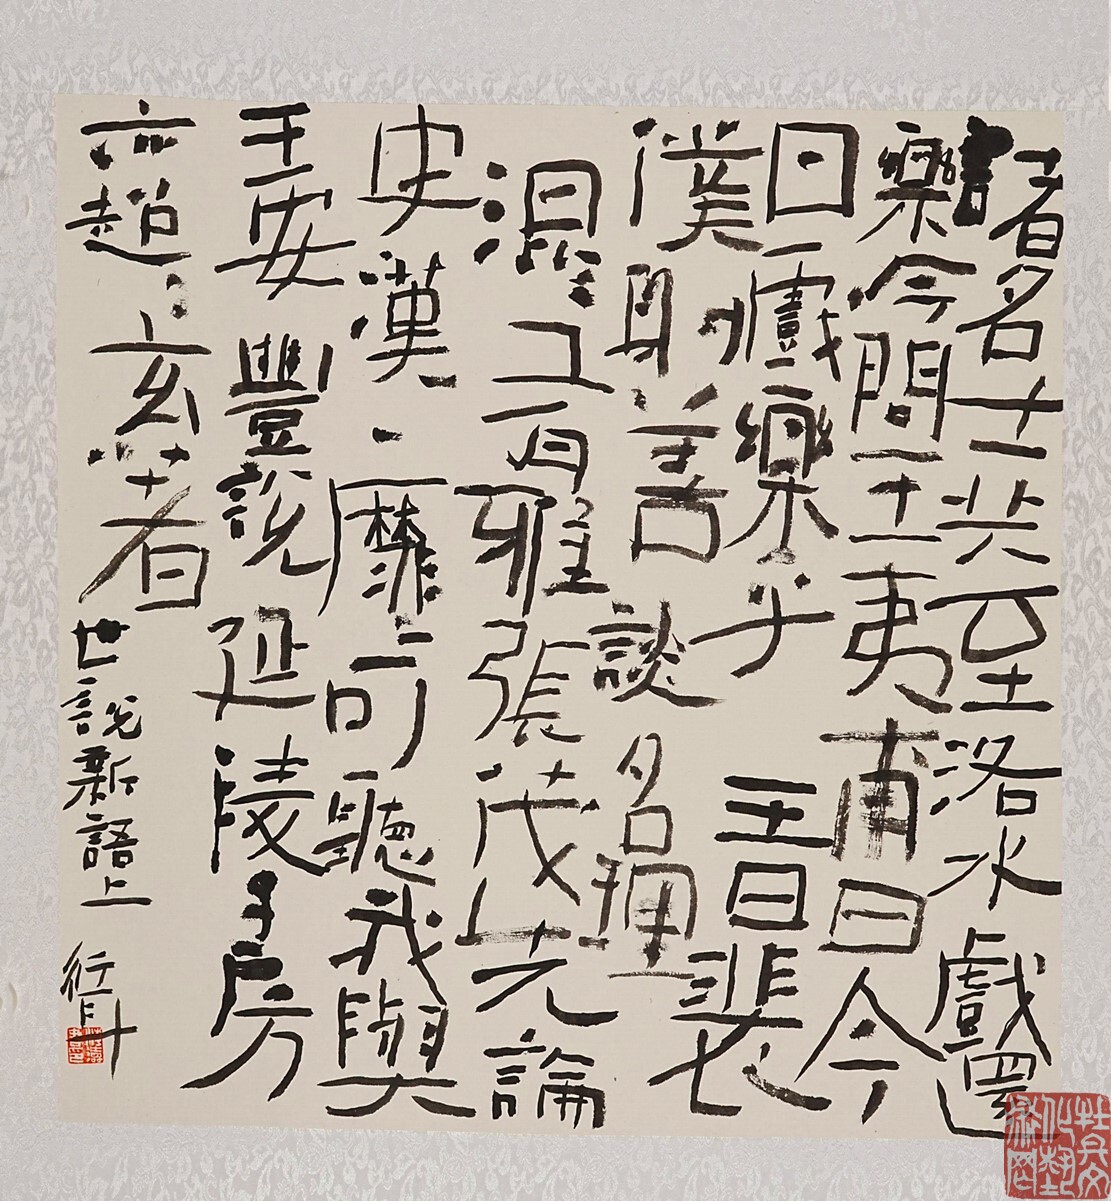 諸名士共至洛水戲還
樂令問王夷甫曰今
日戲樂乎王曰裴
僕射善談名理
混有雅張茂先論
史漢靡可聽我與
王安豐說延陵子房
亦超〻玄著 世說新語上